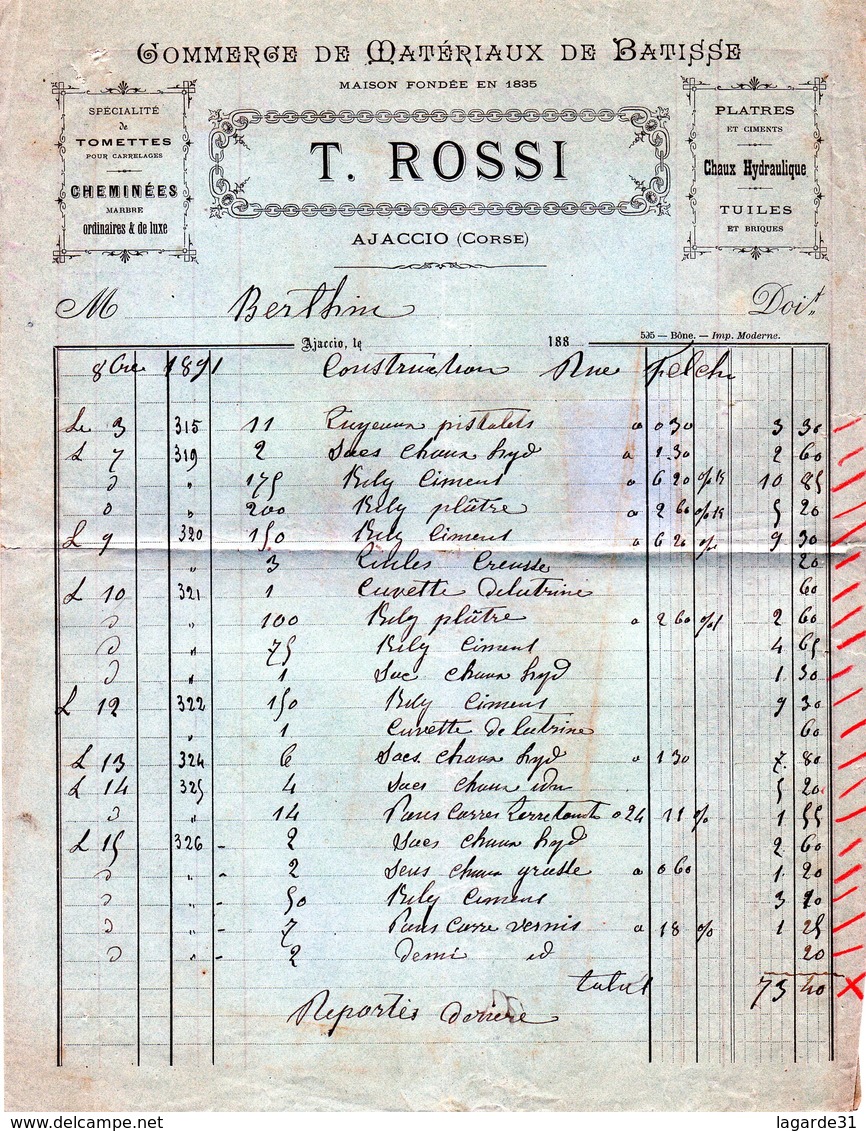 COMMERCE DE MATÉRIAUX DE BATISSE
MAISON FONDÉE EN 1835
SPÉCIALITÉ
de
TOMETTES
POUR CARRELAGES
CHEMINÉES
MARBRE
ordinaires & de luxe
T. ROSSI
AJACCIO (CORSE)
PLATRES
ET CIMENTS
Chaux Hydraulique
TUILES
ET BRIQUES
M Berthin Doit
Ajaccio, le 188 595 — Bône. — Imp. Moderne.
8bre 1891 Construction Rue Fesch
Le 3 315 11 Tuyeaux pistolets a 0 30 3 30
L 7 319 2 Sacs chaux hyd a 1.30 2 60
d " 175 Kilg Ciment a 6 20 %K 10 85
d " 200 Kilg plâtre a 2 60 %K 5 20
L 9 320 150 Kilg Ciment a 6 20 % 9 30
" 3 Tuiles Creusse 20
L 10 321 1 Cuvette de latrine 60
d " 100 Kilg plâtre a 2 60 % 2 60
d " 75 Kilg Ciment 4 65
d " 1 Sac chaux hyd 1 30
L 12 322 150 Kilg Ciment 9 30
" 1 Cuvette de latrine 60
L 13 324 6 Sacs chaux hyd a 1 30 7 80
L 14 325 4 Sacs chaux idn 5 20
d " 14 Pans Carres 0 24 11 % 1 55
L 15 326 - 2 Sacs chaux hyd 2 60
d " - 2 chaux grasse a 0 60 1 20
d " - 50 Kilg Ciment 3 10
d " - 7 Pans Carre vernis a 18 % 1 25
d " - 2 demi id 20
total 73 40
Reportès deriere
lagarde31